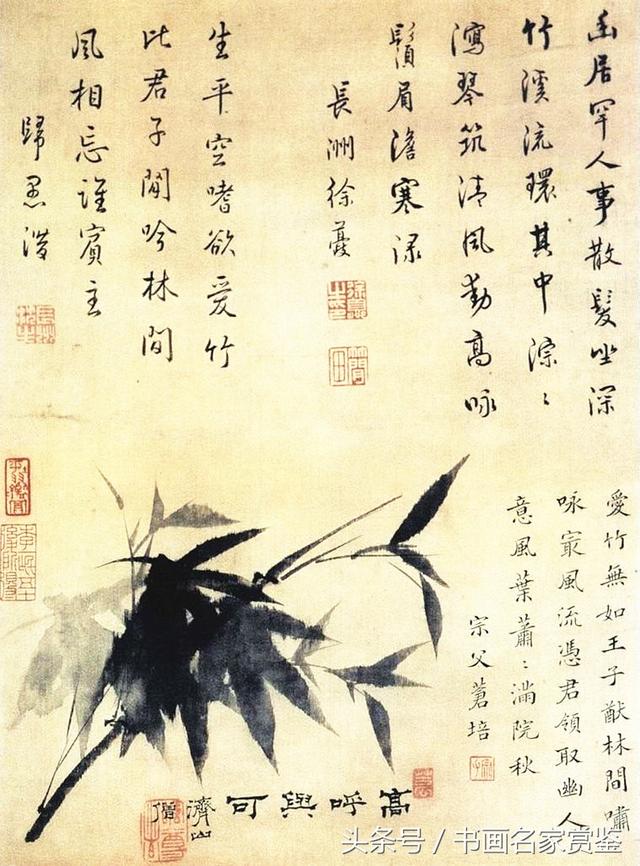 幽居罕人事散髮坐深
竹溪流環其中淙〻
瀉琴筑清風動高咏
鬚眉澹寒渌
長洲徐葆
生平空嗜欲爱竹
比君子閒吟林間
風相忘誰賓主
歸思
愛竹無如王子猷林間嘯
咏最風流憑君領取幽人
意風葉蕭〻滿院秋
宗父蒼培
高呼與可
濟山
僧
头条号 / 书画名家赏鉴